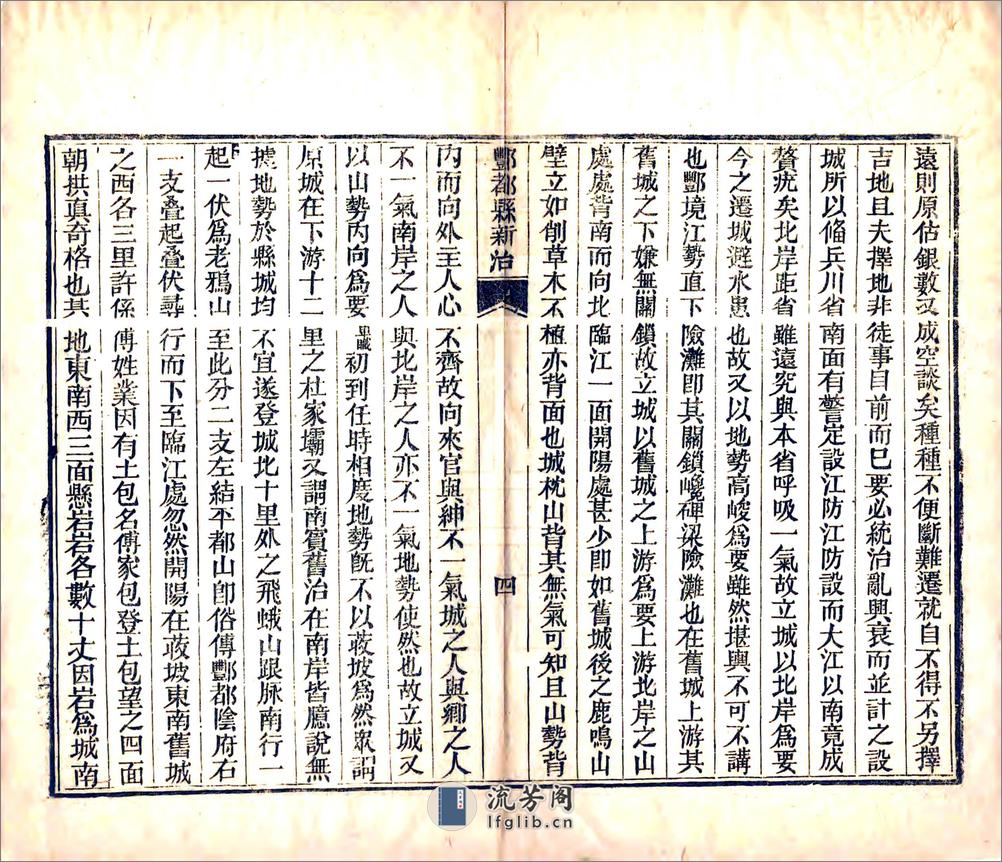 遠則原估銀數又成空談矣種種不便斷難遷就自不得不另擇
吉地且夫擇地非徒事目前而已要必統治亂興衰而並計之設
城所以俻兵川省南面有警定設江防江防設而大江以南竟成
贅疣矣北岸距省雖遠究與本省呼吸一氣故立城以北岸爲要
今之遷城避水患也故又以地勢高峻爲要雖然堪輿不可不講
也酆境江勢直下險灘即其關鎖巉碑梁險灘也在舊城上游其
舊城之下嫌無關鎖故立城以舊城之上游爲要上游北岸之山
處處背南而向北臨江一面開陽處甚少即如舊城後之鹿鳴山
壁立如削草木不植亦背面也城枕山背其無氣可知且山勢背
酆都縣新治
四
內而向外主人心不齊故向來官與紳不一氣城之人與鄉之人
不一氣南岸之人與北岸之人亦不一氣地勢使然也故立城又
以山勢內向爲要
初到任時相度地勢旣不以䓍坡爲然衆謂
原城在下游十二里之杜家壩又謂南賓舊治在南岸皆臆說無
據地勢於縣城均不宜遂登城北十里外之飛蛾山跟脉南行一
起一伏爲老鴉山至此分二支左結平都山即俗傳酆都陰府右
一支叠起叠伏尋行而下至臨江處忽然開陽在坡東南舊城
之西各三里許係傅姓業因有土包名傅家包登土包望之四面
朝拱真奇格也其地東南西三面懸岩岩各數十丈因岩爲城南
流芳阁
lfglib.cn